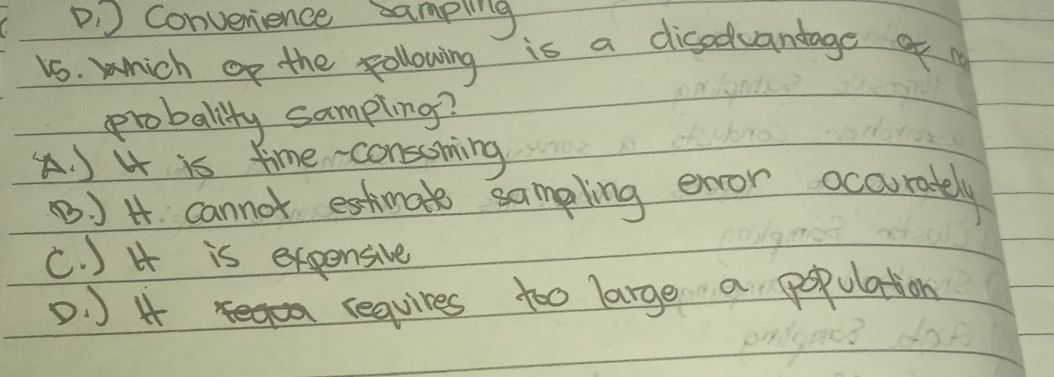 D.) Convenience Sampling
15. Which of the following is a disadvantage of
probality sampling?
A.) It is time-consuming
B.) It cannot estimate sampling error acourately
C.) It is expensive
D.) It requires too large a population